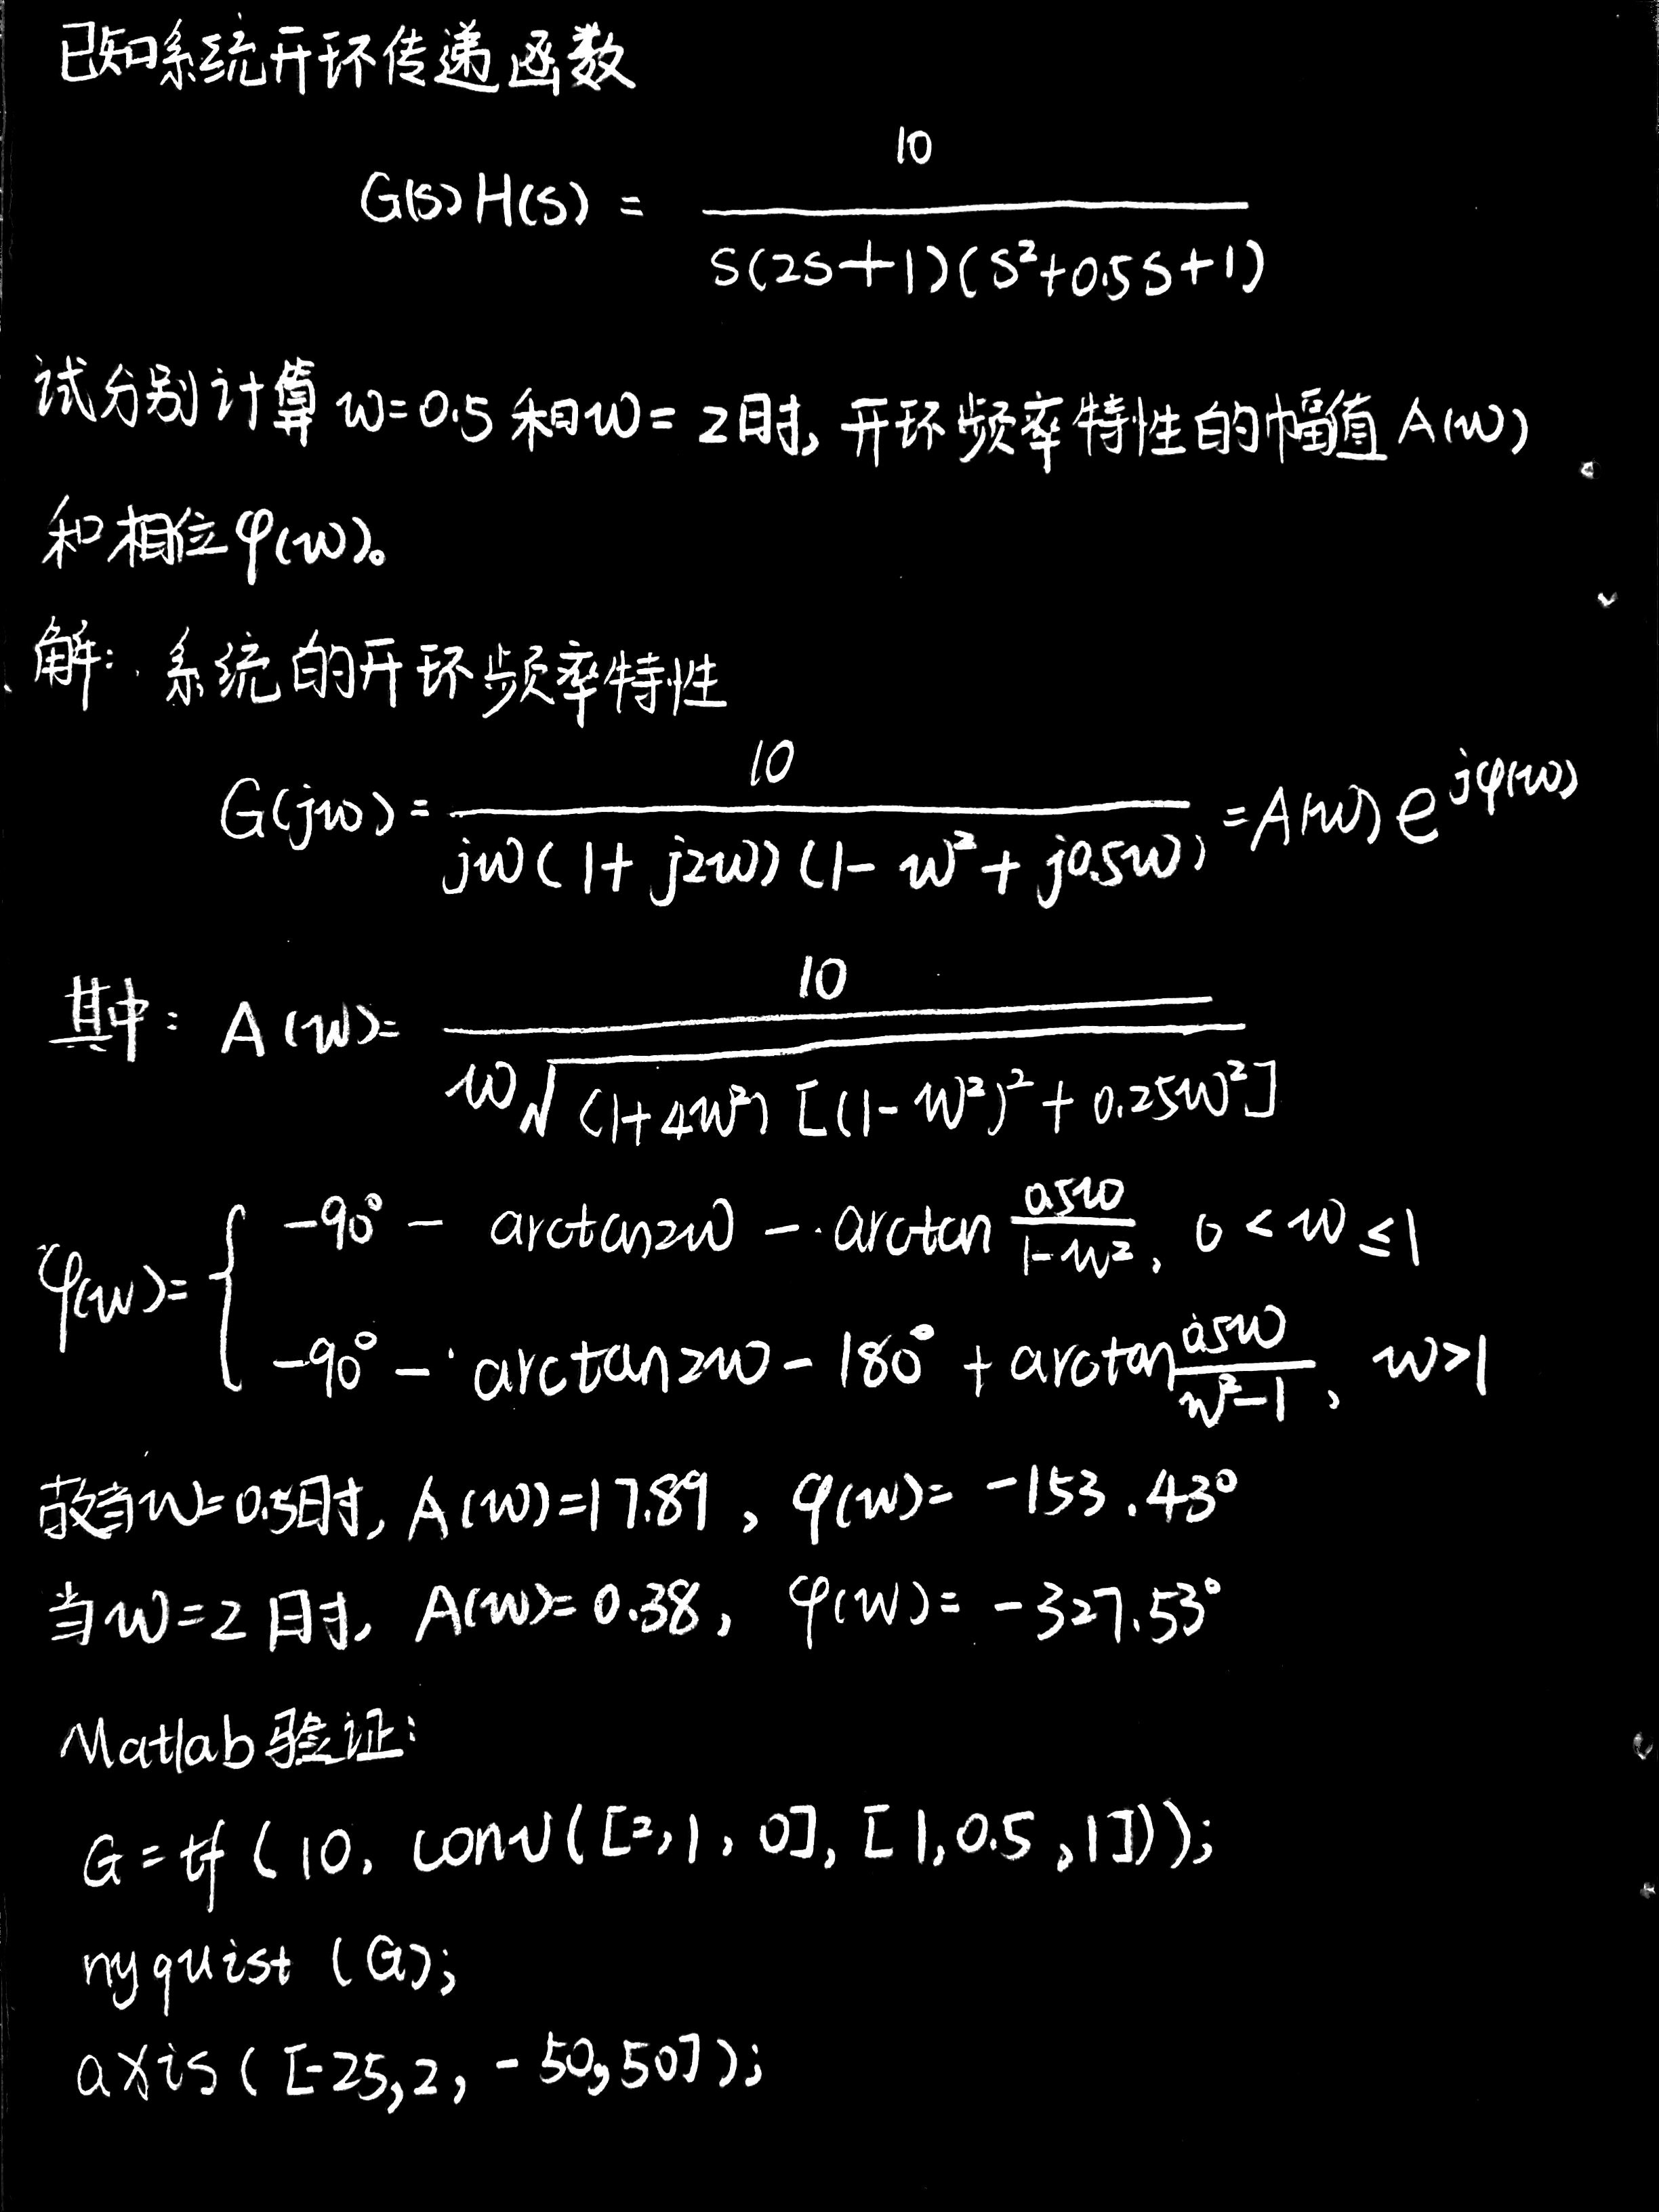 已知系统开环传递函数
G(s)H(s) = 10 / s(2s+1)(s²+0.5s+1)
试分别计算 w=0.5 和 w=2时, 开环频率特性的幅值 A(w)
和相位 φ(w)。
解: 系统的开环频率特性
G(jw) = 10 / jw(1+j2w)(1-w²+j0.5w) = A(w) e^jφ(w)
其中: A(w) = 10 / w√(1+4w²)[(1-w²)²+0.25w²]
φ(w) = { -90° - arctan2w - arctan 0.5w/1-w², 0<w≤1
-90° - arctan2w - 180° + arctan 0.5w/w²-1, w>1
故当w=0.5时, A(w)=17.89, φ(w)= -153.43°
当w=2时, A(w)=0.38, φ(w)= -327.53°
Matlab验证:
G=tf(10, conv([2,1,0],[1,0.5,1]));
nyquist(G);
axis([-25,2,-50,50]);